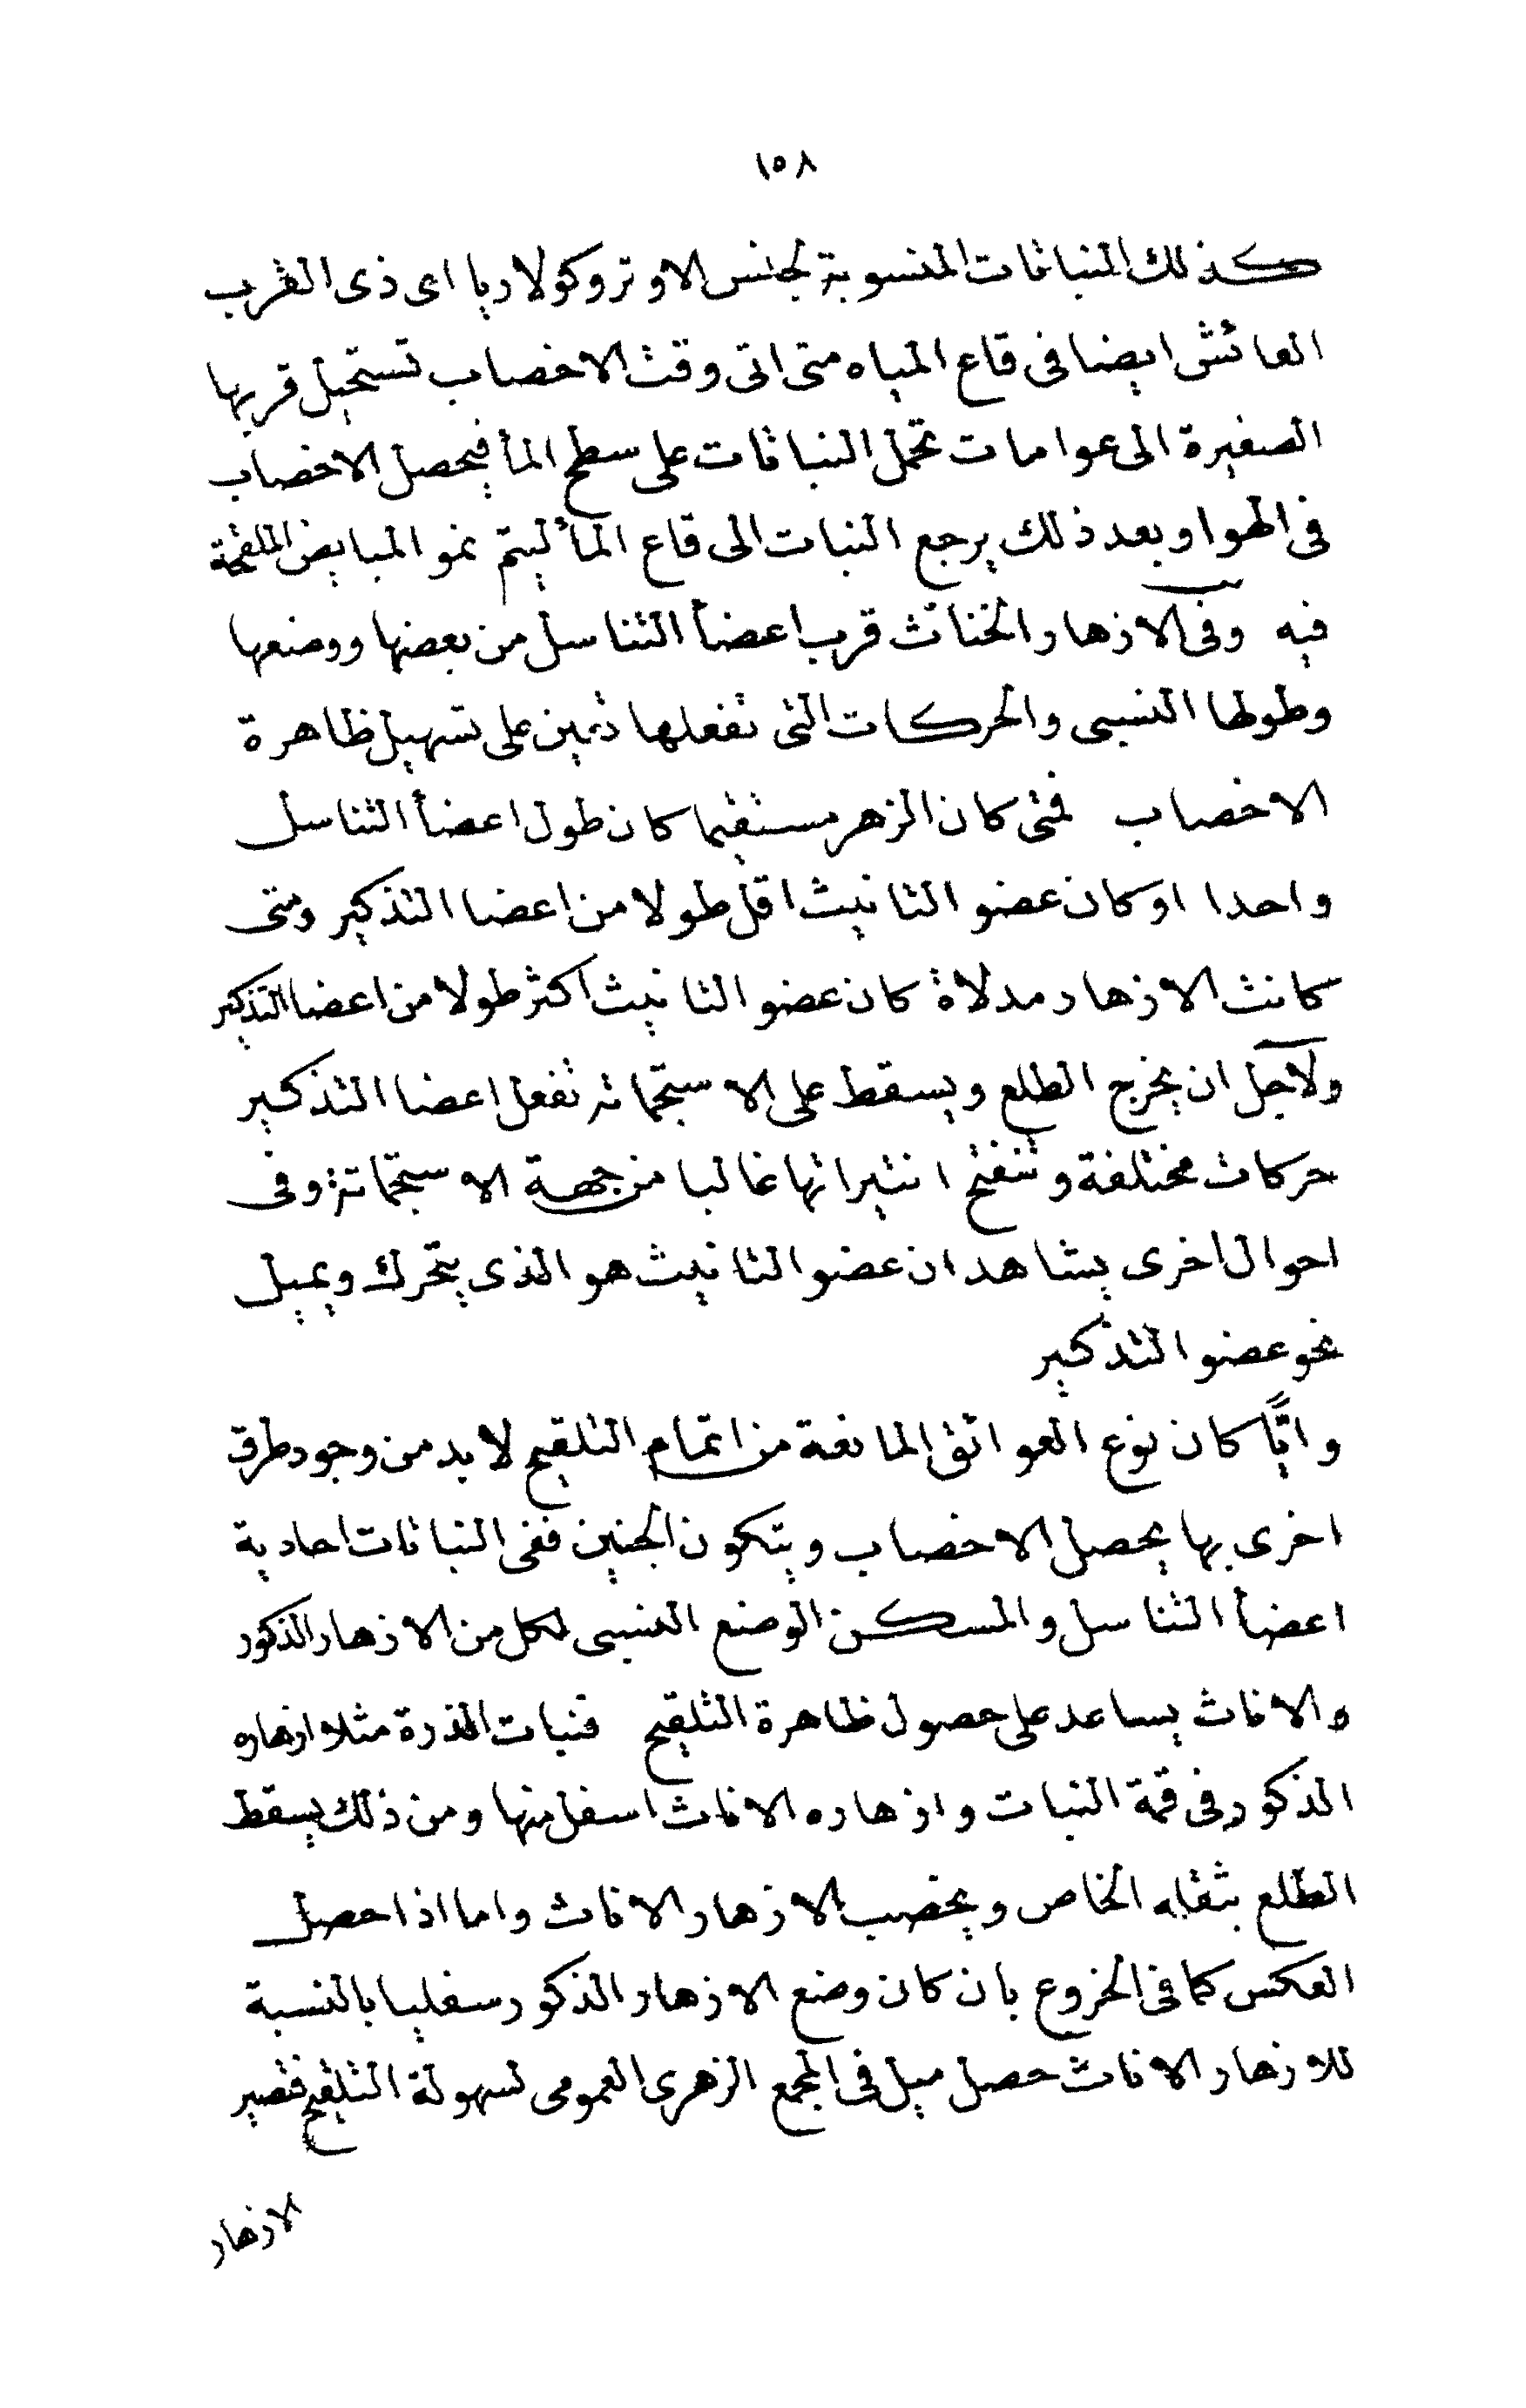 ١٥٨
كذلك النباتات المنسوبة لجنس الاوتروكولاريا اى ذى القرب
العائش ايضا فى قاع المياه متى اتى وقت الاخصاب تستحيل قربها
الصغيرة الى عوامات تحمل النباتات على سطح المأ فيحصل الاخصاب
فى الهوا وبعد ذلك يرجع النبات الى قاع المأ ليتم نمو المبايض الملقحة
فيه وفى الازهار الخناث قرب اعضأ التناسل من بعضها ووضعها
وطولها النسبى والحركات التى تفعلها تعين على تسهيل ظاهرة
الاخصاب فمتى كان الزهر مستقيما كان طول اعضأ التناسل
واحدا اوكان عضو التانيث اقل طولا من اعضا التذكير ومتى
كانت الازهار مدلاة كان عضو التانيث اكثر طولا من اعضا التذكير
ولاجل ان يخرج الطلع ويسقط على الاستجماته تفعل اعضا التذكير
حركات مختلفة وتنفتح انتيراتها غالبا من جهة الاستجماتة وفى
احوال اخرى يشاهد ان عضو التانيث هو الذى يتحرك ويميل
نحو عضو التذكير
وايًّا كان نوع العوائق المانعة من اتمام التلقيح لابد من وجود طرق
اخرى بها يحصل الاخصاب ويتكون الجنين ففى النباتات احادية
اعضأ التناسل والمسكن الوضع النسبى لكل من الازهار الذكور
والاناث يساعد على حصول ظاهرة التلقيح فنبات الذرة مثلا ازهاره
الذكور فى قمة النبات وازهاره الاناث اسفل منها ومن ذلك يسقط
الطلع بثقله الخاص ويخصب الازهار الاناث واما اذا حصل
العكس كما فى الخروع بان كان وضع الازهار الذكور سفليا بالنسبة
للازهار الاناث حصل ميل فى المجمع الزهرى العمومى لسهولة التلقيح فتصير
الازهار